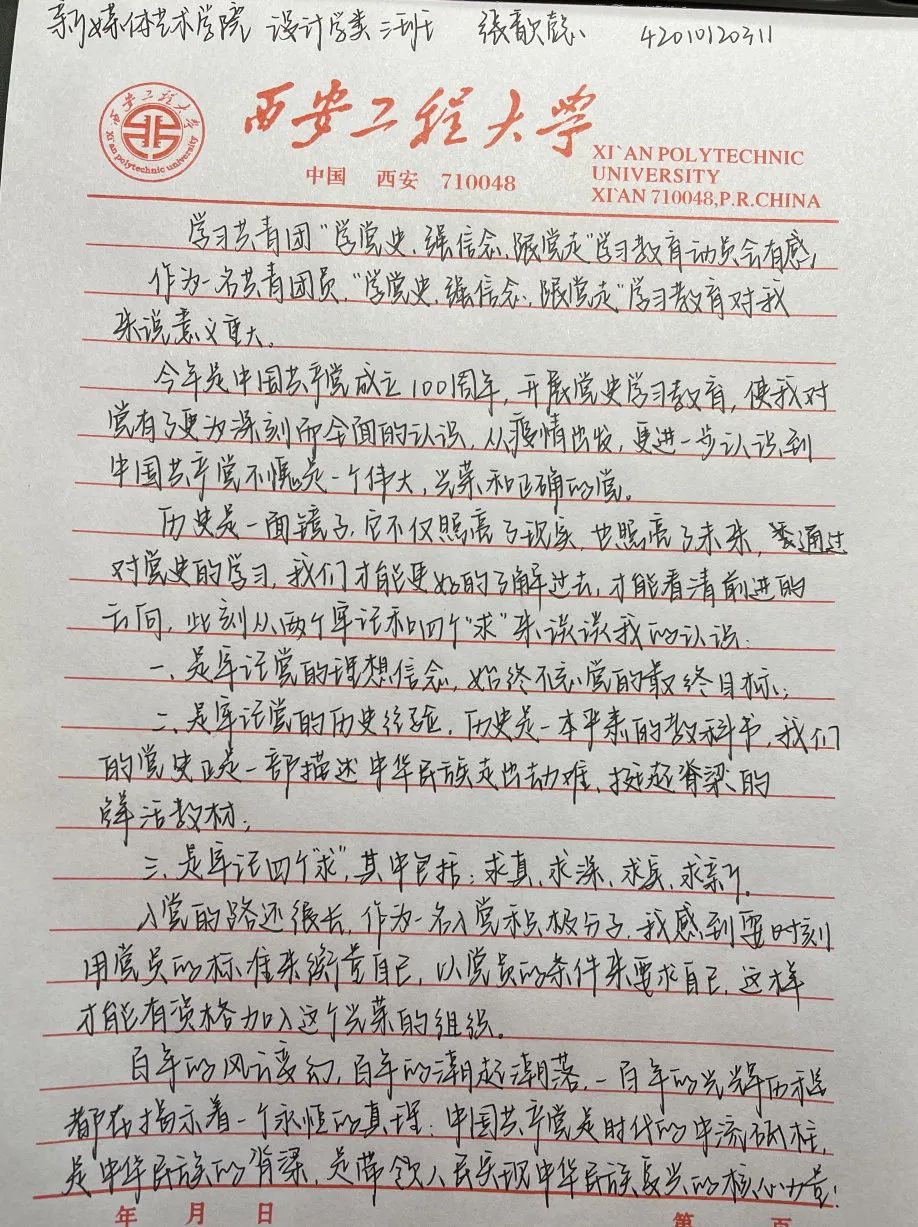 新媒体艺术学院 设计学类 三班 张歆懿 42010120311
西安工程大学
西安工程大学
Xi'an polytechnic university
中国 西安 710048
XI`AN POLYTECHNIC
UNIVERSITY
XI'AN 710048,P.R.CHINA
学习共青团“学党史、强信念、跟党走”学习教育动员会有感
作为一名共青团员,“学党史、强信念、跟党走”学习教育对我
来说意义重大。
今年是中国共产党成立100周年,开展党史学习教育,使我对
党有了更为深刻而全面的认识,从疫情出发,更进一步认识到
中国共产党不愧是一个伟大、光荣和正确的党。
历史是一面镜子,它不仅照亮了现实,也照亮了未来,通过
对党史的学习,我们才能更好的了解过去,才能看清前进的
方向,此刻从两个牢记和四个“求”来谈谈我的认识:
一、是牢记党的理想信念,始终不忘党的最终目标;
二、是牢记党的历史经验,历史是一本平素的教科书,我们
的党史正是一部描述中华民族走出劫难、挺起脊梁的
鲜活教材;
三、是牢记四个“求”,其中包括:求真、求深、求实、求新。
入党的路还很长,作为一名入党积极分子,我感到要时刻
用党员的标准来衡量自己,以党员的条件来要求自己,这样
才能有资格加入这个光荣的组织。
百年的风云变幻,百年的潮起潮落,一百年的光辉历程
都在揭示着一个永恒的真理:中国共产党是时代的中流砥柱,
是中华民族的脊梁,是带领人民实现中华民族复兴的核心力量!
年 月 日 第 页